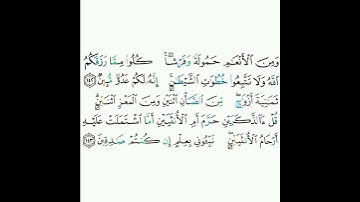 وَمِنَ ٱلْأَنْعَٰمِ حَمُولَةً وَفَرْشًا ۚ كُلُوا۟ مِمَّا رَزَقَكُمُ
ٱللَّهُ وَلَا تَتَّبِعُوا۟ خُطُوَٰتِ ٱلشَّيْطَٰنِ ۚ إِنَّهُۥ لَكُمْ عَدُوٌّ مُّبِينٌ ١٤٢
ثَمَٰنِيَةَ أَزْوَٰجٍ ۖ مِّنَ ٱلضَّأْنِ ٱثْنَيْنِ وَمِنَ ٱلْمَعْزِ ٱثْنَيْنِ ۗ
قُلْ ءَآلذَّكَرَيْنِ حَرَّمَ أَمِ ٱلْأُنثَيَيْنِ أَمَّا ٱشْتَمَلَتْ عَلَيْهِ
أَرْحَامُ ٱلْأُنثَيَيْنِ ۖ نَبِّـُٔونِى بِعِلْمٍ إِن كُنتُمْ صَٰدِقِينَ ١٤٣